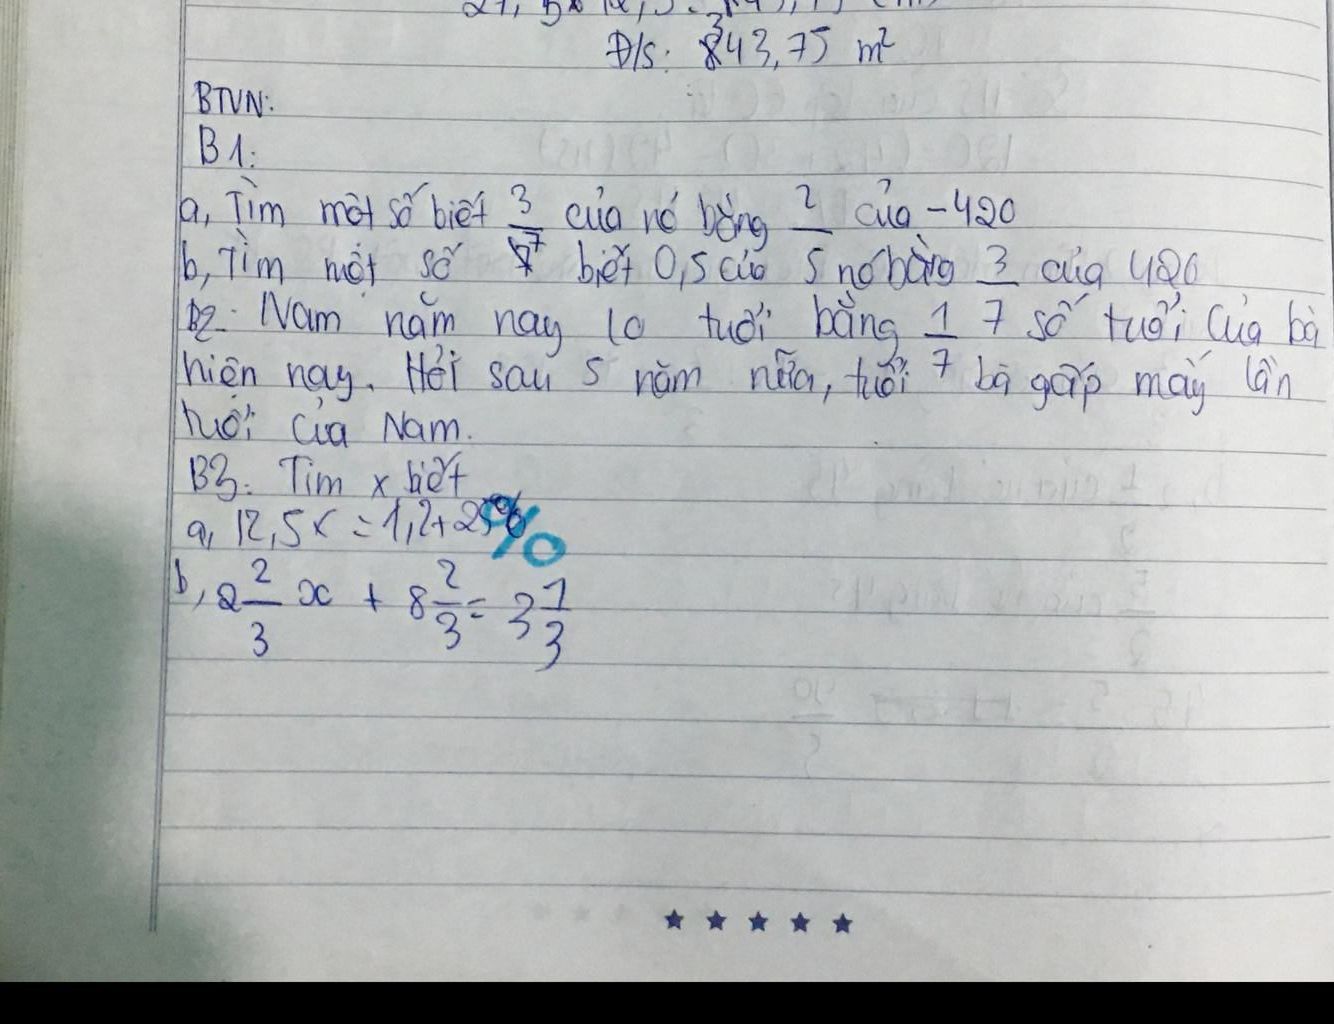 Đ/s: 343,75 m²
BTVN:
B1:
a, Tìm một số biết 3/7 của nó bằng 2/5 của -420
b, Tìm một số biết 0,5 của nó bằng 3/7 của 420
B2: Nam năm nay 10 tuổi bằng 1/7 số tuổi của bà
hiện nay. Hỏi sau 5 năm nữa, tuổi bà gấp mấy lần
tuổi của Nam.
B3: Tìm x biết
a, 12,5x = 1,2+25%
b, 2 2/3 x + 8 2/3 = 3 1/3